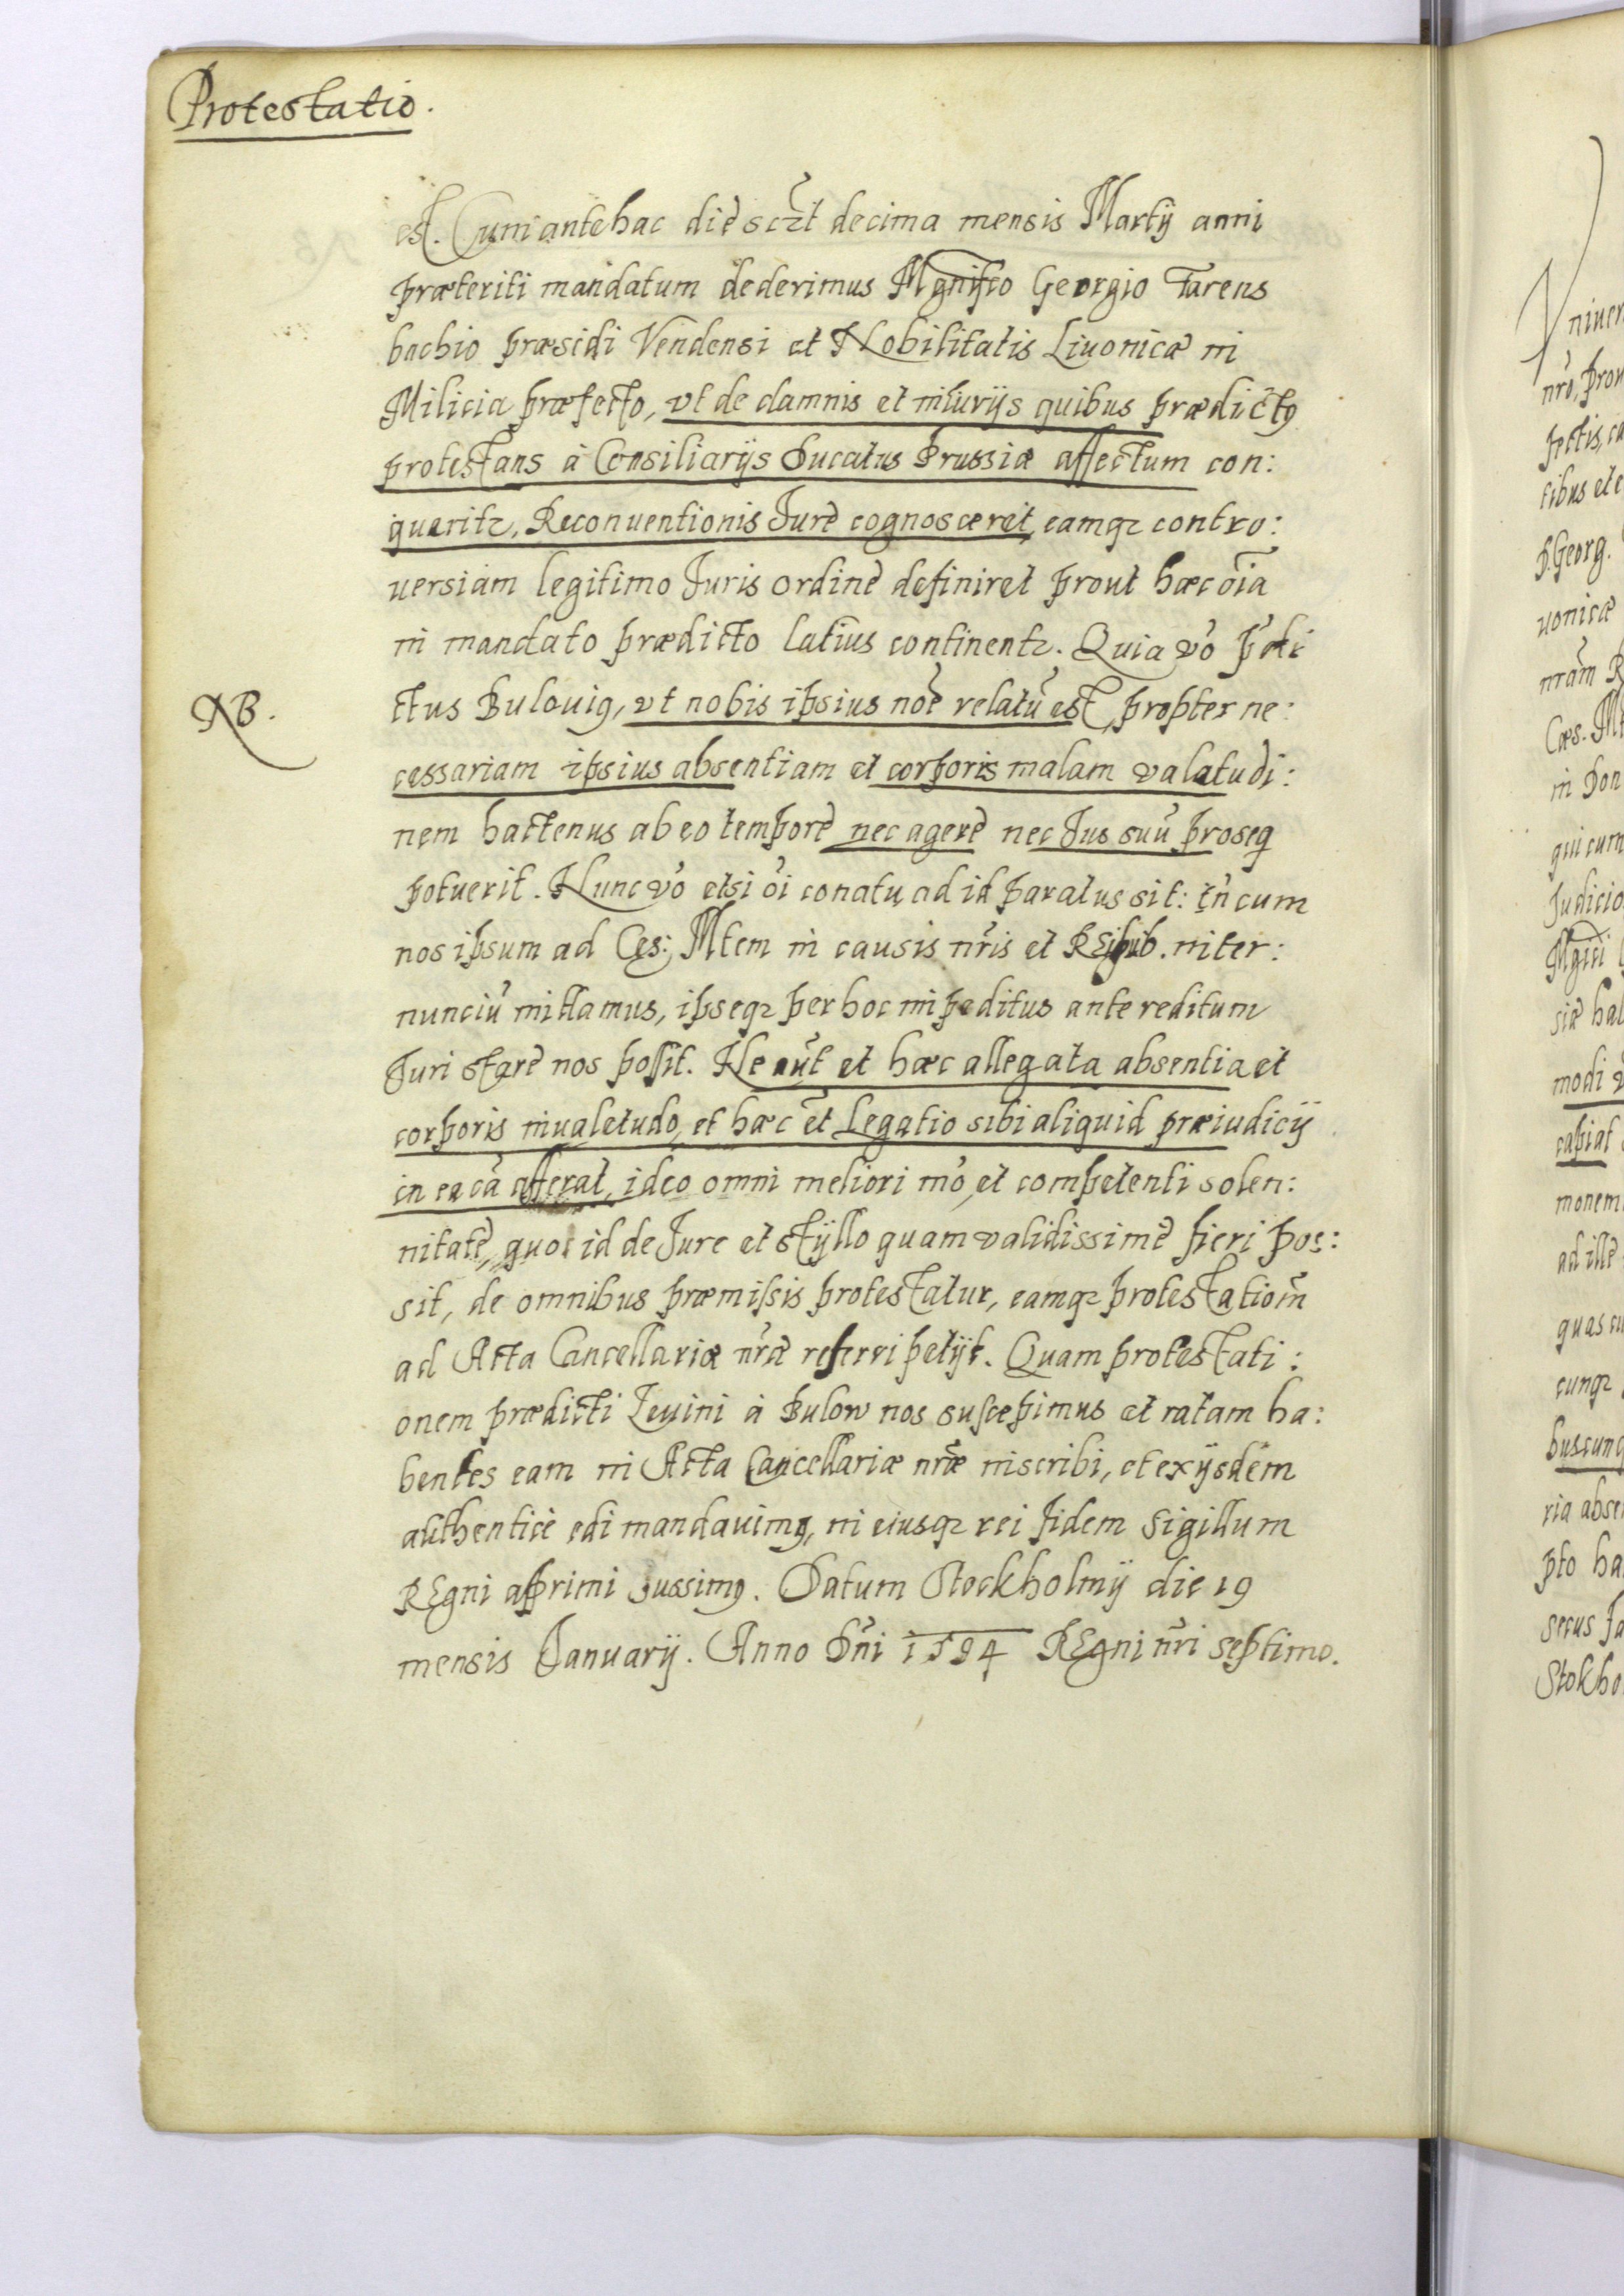 Protestatio.
est. Cum antehac die sczt decima mensis Martij anni
præteriti mandatum dederimus Mgnifco Georgio Farens
bachio præsidi Vendensi et Nobilitatis Liuonicæ in
Milicia præfecto, vt de damnis et iniurijs quibus prædictꝰ
protestans à Consiliarijs Ducatus Prussiæ affectum con:
queritz, Reconuentionis Jure cognosceret, eamqz contro:
uersiam legitimo Juris ordine definiret prout hæc oia
in mandato prædicto latius continentz. Quia vo pdi
NB.
ctus Bulouiꝰ, vt nobis ipsius noe relatũ est, propter ne:
cessariam ipsius absentiam et corporis malam valatudi:
nem hactenus ab eo tempore nec agere nec Jus suũ proseq
potuerit. Nunc vo etsi oi conatu ad id paratus sit: tñ cum
nos ipsum ad Cęs: Mtem in causis nr̃is et REipub. inter:
nunciũ mittamus, ipseqz per hoc impeditus ante reditum
Juri stare nos possit. Ne aũt et hæc allegata absentia et
corporis inualetudo, et hæc et̃ Legatio sibi aliquid præiudicij
in ea cã afferat, ideo omni meliori mo, et competenti solen:
nitate, quo id de Jure et styllo quam validissime fieri pos:
sit, de omnibus præmissis protestatur, eamqz protestatiom̃
ad Acta Cancellariæ nr̃æ referri petijt. Quam protestati:
onem prædicti Leuini à Bulow nos suscepimus et ratam ha:
bentes eam in Acta Cancellariæ nr̃æ inscribi, et ex ijsdem
authentice edi mandauimꝰ, in eiusqz rei fidem Sigillum
REgni apprimi jussimꝰ. Datum Stockholmij die 19
mensis Januarij. Anno Dñi 1594 REgni nr̃i septimo.